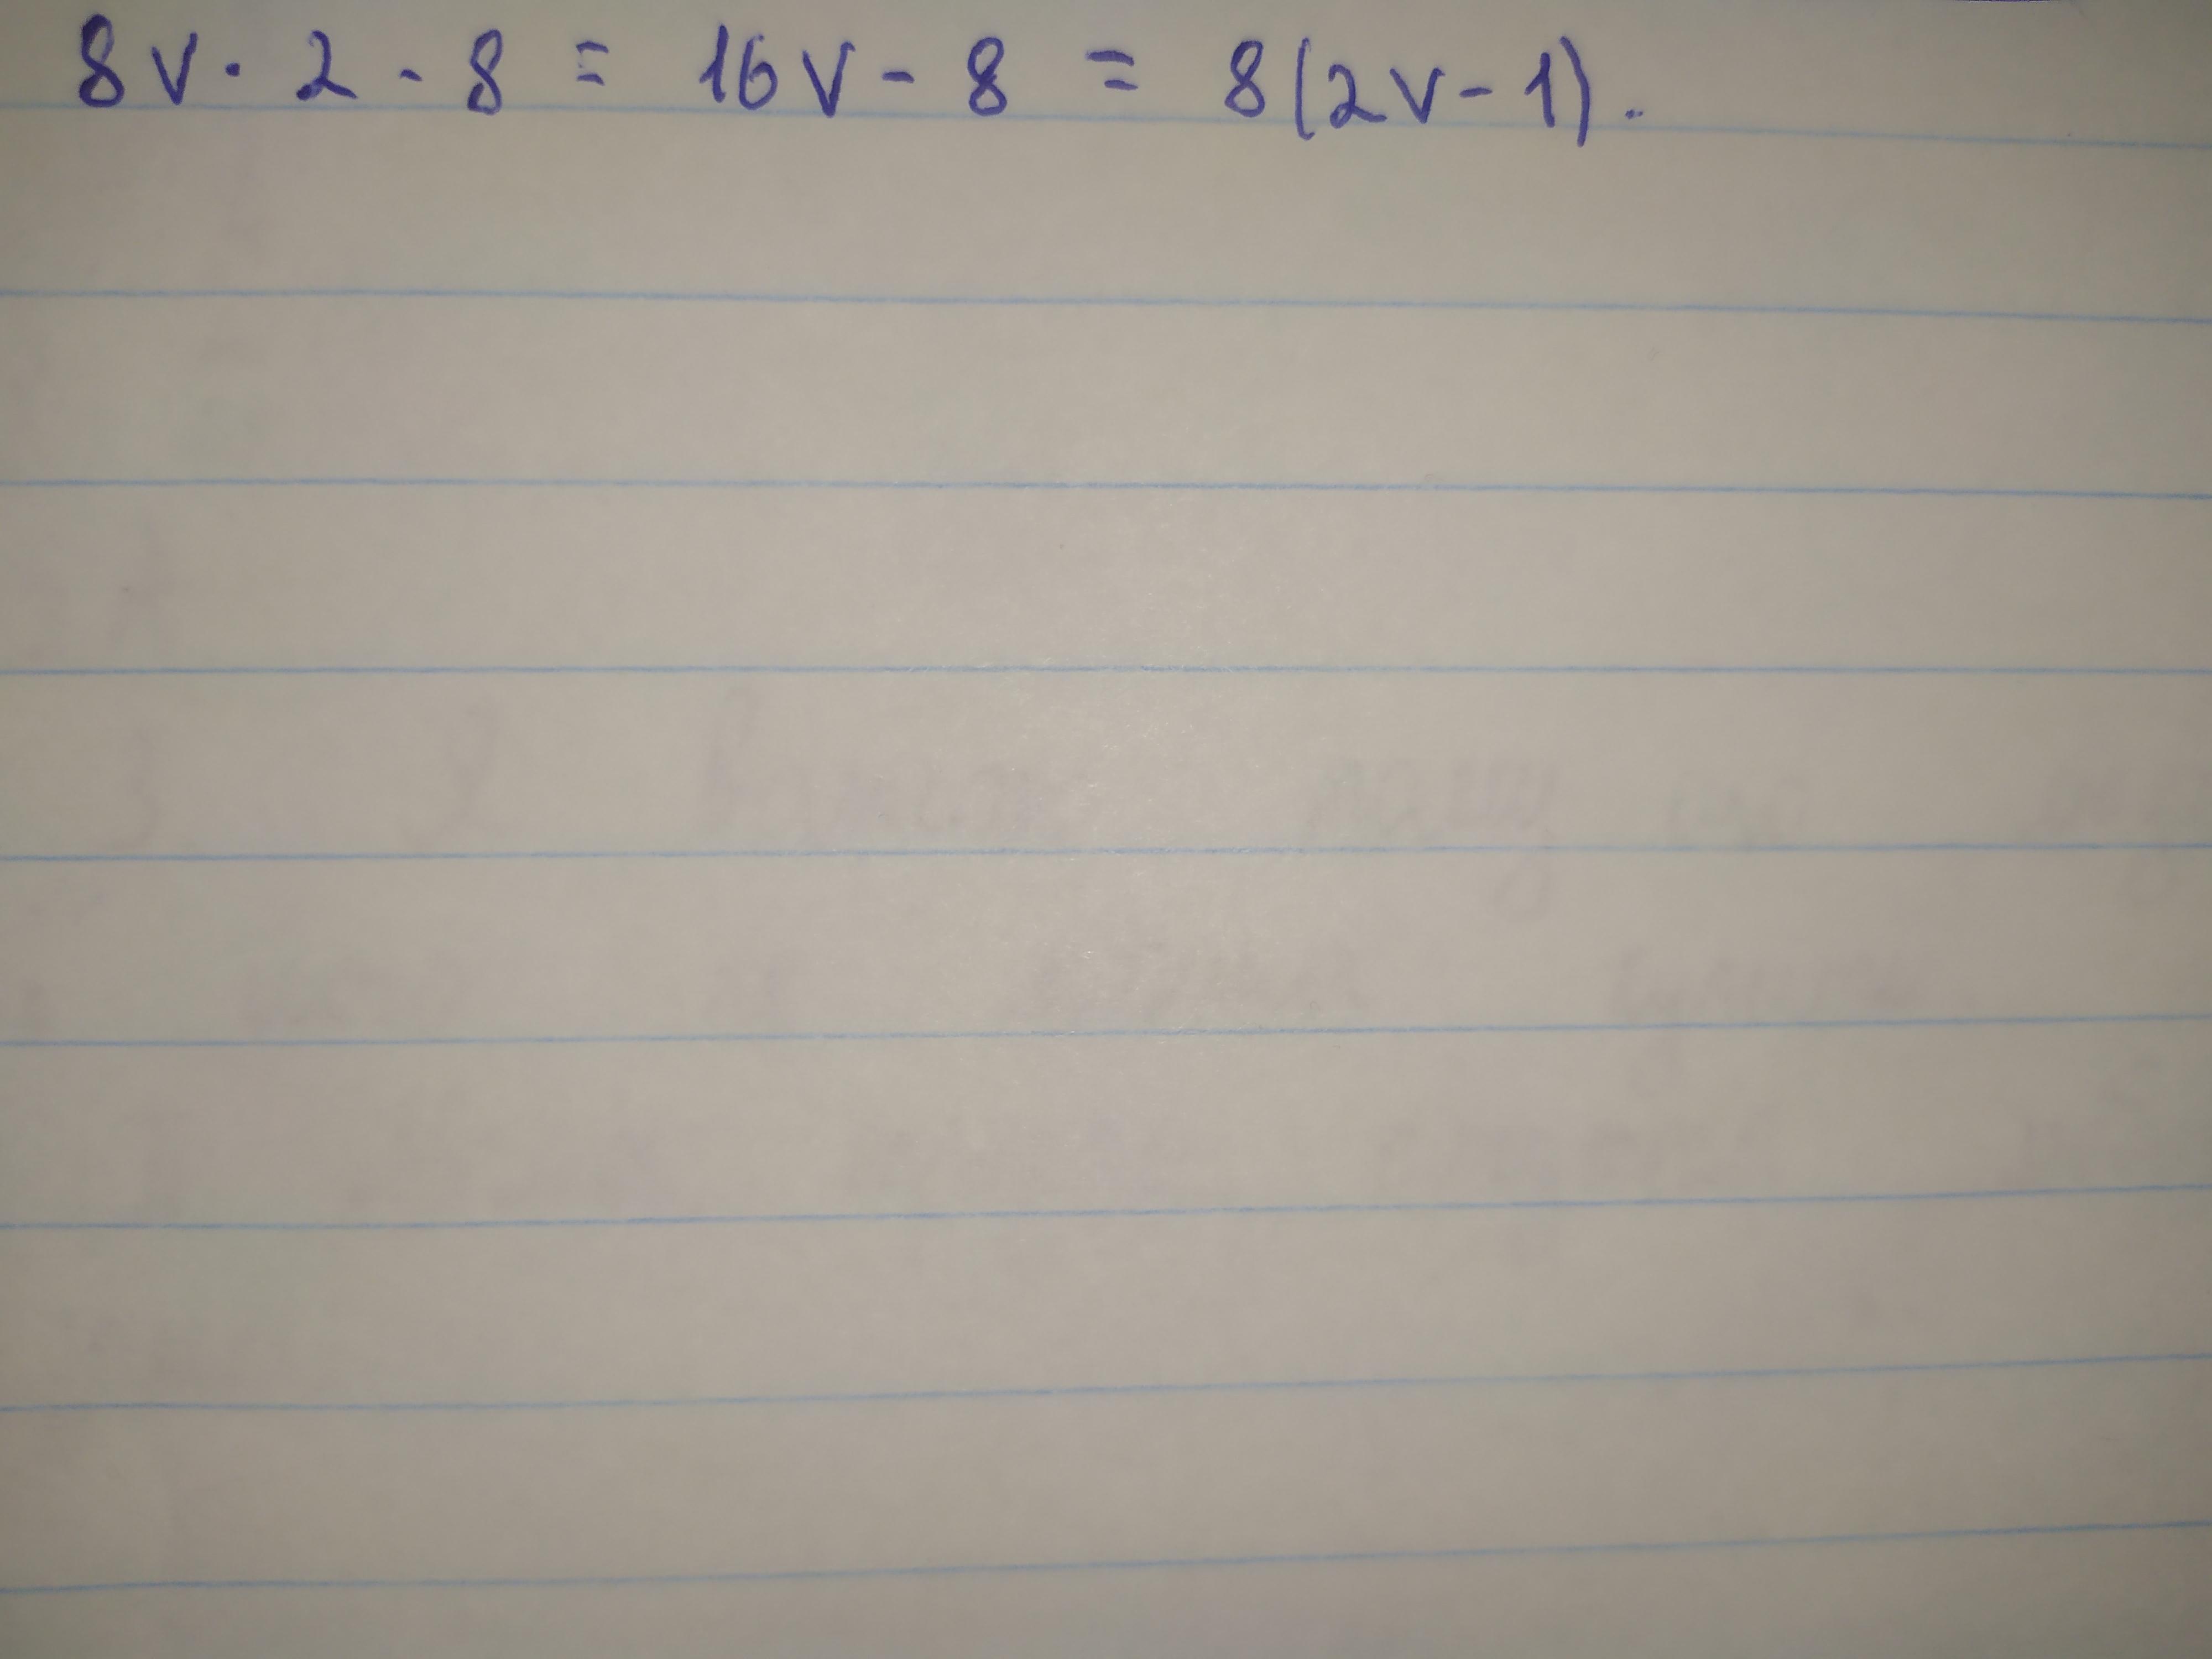 8v · 2 - 8 = 16v - 8 = 8(2v - 1).